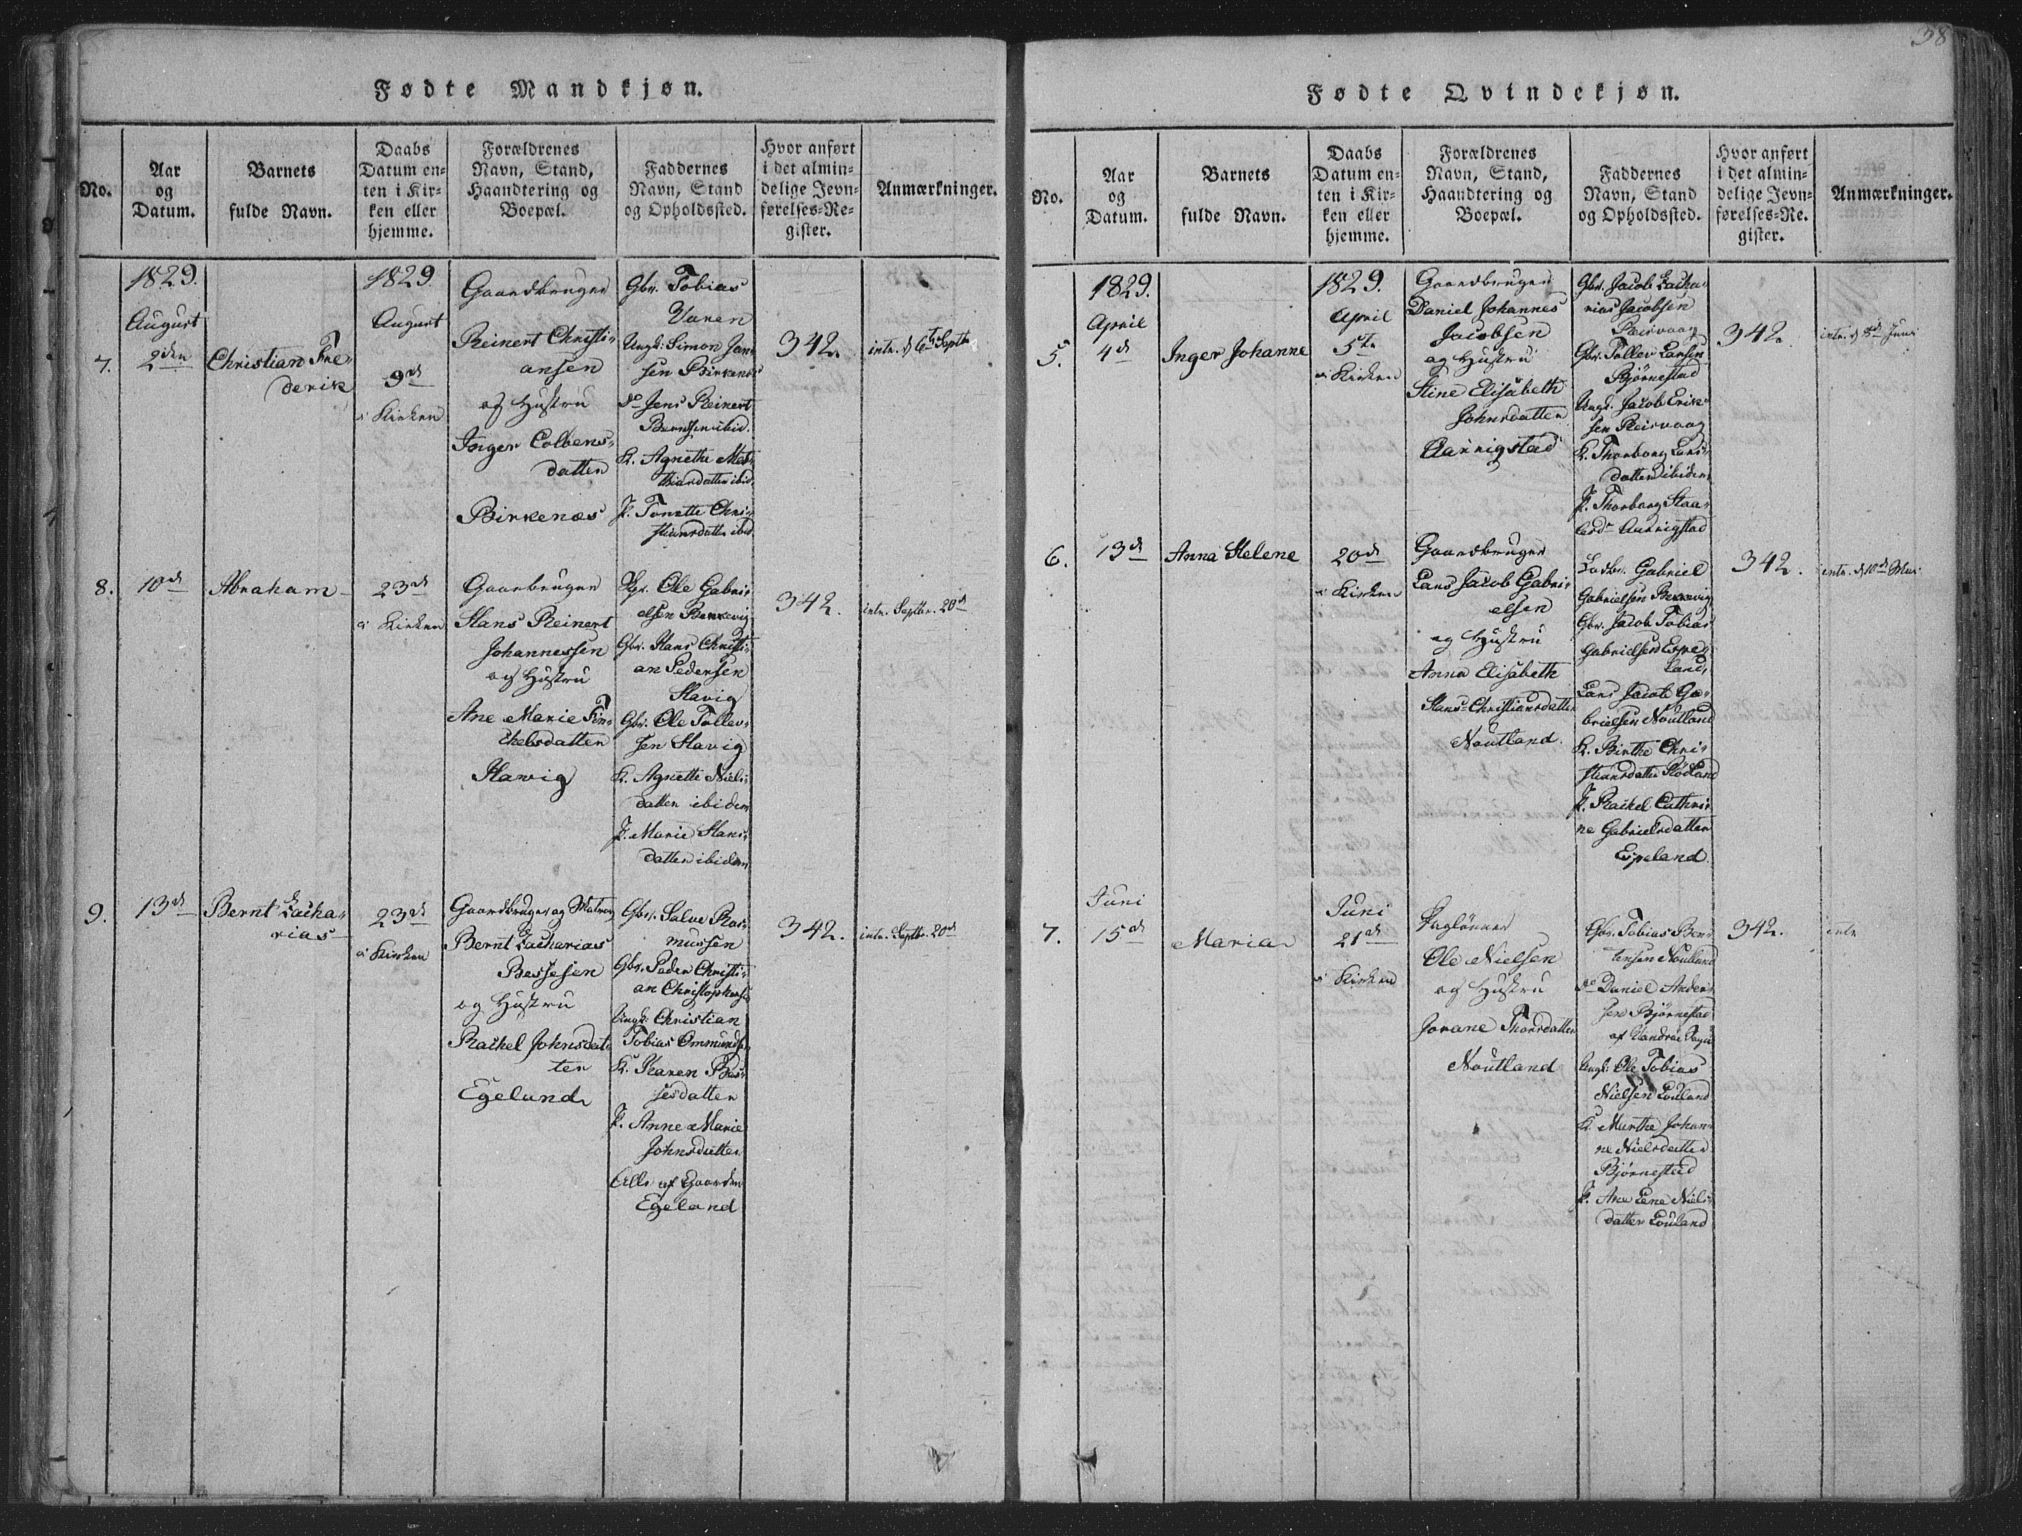 38
Fødte Mandkjøn.
No.
Aar
og
Datum.
Barnets
fulde Navn.
Daabs
Datum en-
ten i Kir-
ken eller
hjemme.
Forældrenes
Navn, Stand,
Haandtering og
Boepæl.
Faddernes
Navn, Stand
og Opholdssted.
Hvor anført
i det almin-
delige Jevn-
førelses-Re-
gister.
Anmærkninger.
7.
1829.
August
2den
Christian Fre-
derik
1829
August
9de
i Kirken
Gaardbruger
Reinert Christi-
ansen
og Hustru
Inger Colbens-
datter
Birkenæs
Gbr. Tobias
Vanen
Ungk: Simon Jen-
sen Birkenæs
do Jens Reinert
Berntsen ibid.
K. Agnethe Mat-
thiasdatter ibid.
P. Tonette Chri-
stiansdatter ibid
342.
intr. d 6te Septbr
8.
10de
Abraham
23de
i Kirken
Gaarbruger
Hans Reinert
Johannessen
og Hustru
Ane Marie Tor-
kelsdatter
Havig
Gbr. Ole Gabri-
elsen
Gbr. Hans Christi-
an Pedersen
Havig
Gbr. Ole Tollev-
sen Havig
K. Agnette Niels-
datter ibidem
P. Marie Hans-
datter ibidem
342.
intr. Septbr. 20de
9.
13de
Bernt Zacha-
rias
23de
i Kirken
Gaardbruger og
Bernt Zacharias
Bessesen
og Hustru
Rachel Johnsdat-
ter
Egeland
Gbr. Salve Ras-
mussen
Gbr. Peder Christi-
an Christophersen
Ungk: Christian
Tobias Ommundsen
K. Karen Bes-
sesdatter
P. Anne Marie
Johnsdatter
Alle af Gaarden
Egeland
342.
intr. Septbr. 20de
Fødte Qvindekjøn.
No.
Aar
og
Datum.
Barnets
fulde Navn.
Daabs
Datum en-
ten i Kir-
ken eller
hjemme.
Forældrenes
Navn, Stand,
Haandtering og
Boepæl.
Faddernes
Navn, Stand
og Opholdssted.
Hvor anført
i det almin-
delige Jevn-
førelses-Re-
gister.
Anmærkninger.
5.
1829.
April
4de
Inger Johanne
1829.
April
5te
i Kirken
Gaardbruger
Daniel Johannes
Jacobsen
og Hustru
Stine Elisabeth
Johnsdatter
Aanrigstad
Gbr. Jacob Zacha-
rias Jacobsen
Reisvaag
Gbr. Tollev Larsen
Bjørnestad
Ungk. Jacob Erik-
sen Reisvaag
K. Thorborg Lars-
datter ibidem
P. Thorborg Haa-
Aanrigstad
342.
intr. d Juni
6.
13de
Anna Helene
20de
i Kirken
Gaardbruger
Lars Jacob Gabri-
elsen
og Hustru
Anna Elisabeth
Hans-Christiansdatter
Noutland.
Gabriel
Gabrielsen
Gbr. Jacob Tobias
Gabrielsen Espe-
land,
Lars Jacob Ga-
brielsen Noutland
K. Birthe Chri-
stiansdatter Rødland
P. Rachel Cathri-
ne Gabrielsdatter
Espeland.
342.
intr. d 10de Mai
7.
Juni
15de
Maria
Juni
21de
i Kirken
Daglønner
Ole Nielsen
og Hustru
Jorane Thorsdatter
Noutland
Gbr. Tobias Ber-
tensen Noutland
do Daniel Ander-
sen Bjørnestad
af Vandrøe Sogn
Ungk: Ole Tobias
Nielsen Louland
K. Marthe Johan-
ne Nielsdatter
Bjørnestad
P. Ane Lene Niels-
datter Louland
342.
intr